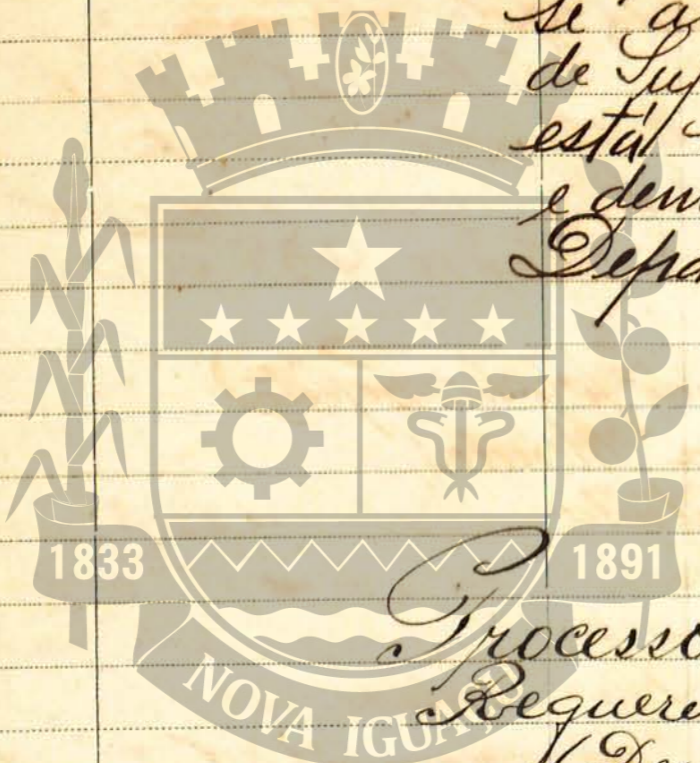 se a
de Sup
está
e dem
Depa
1833
1891
Processo
Requere
NOVA IGUAÇU